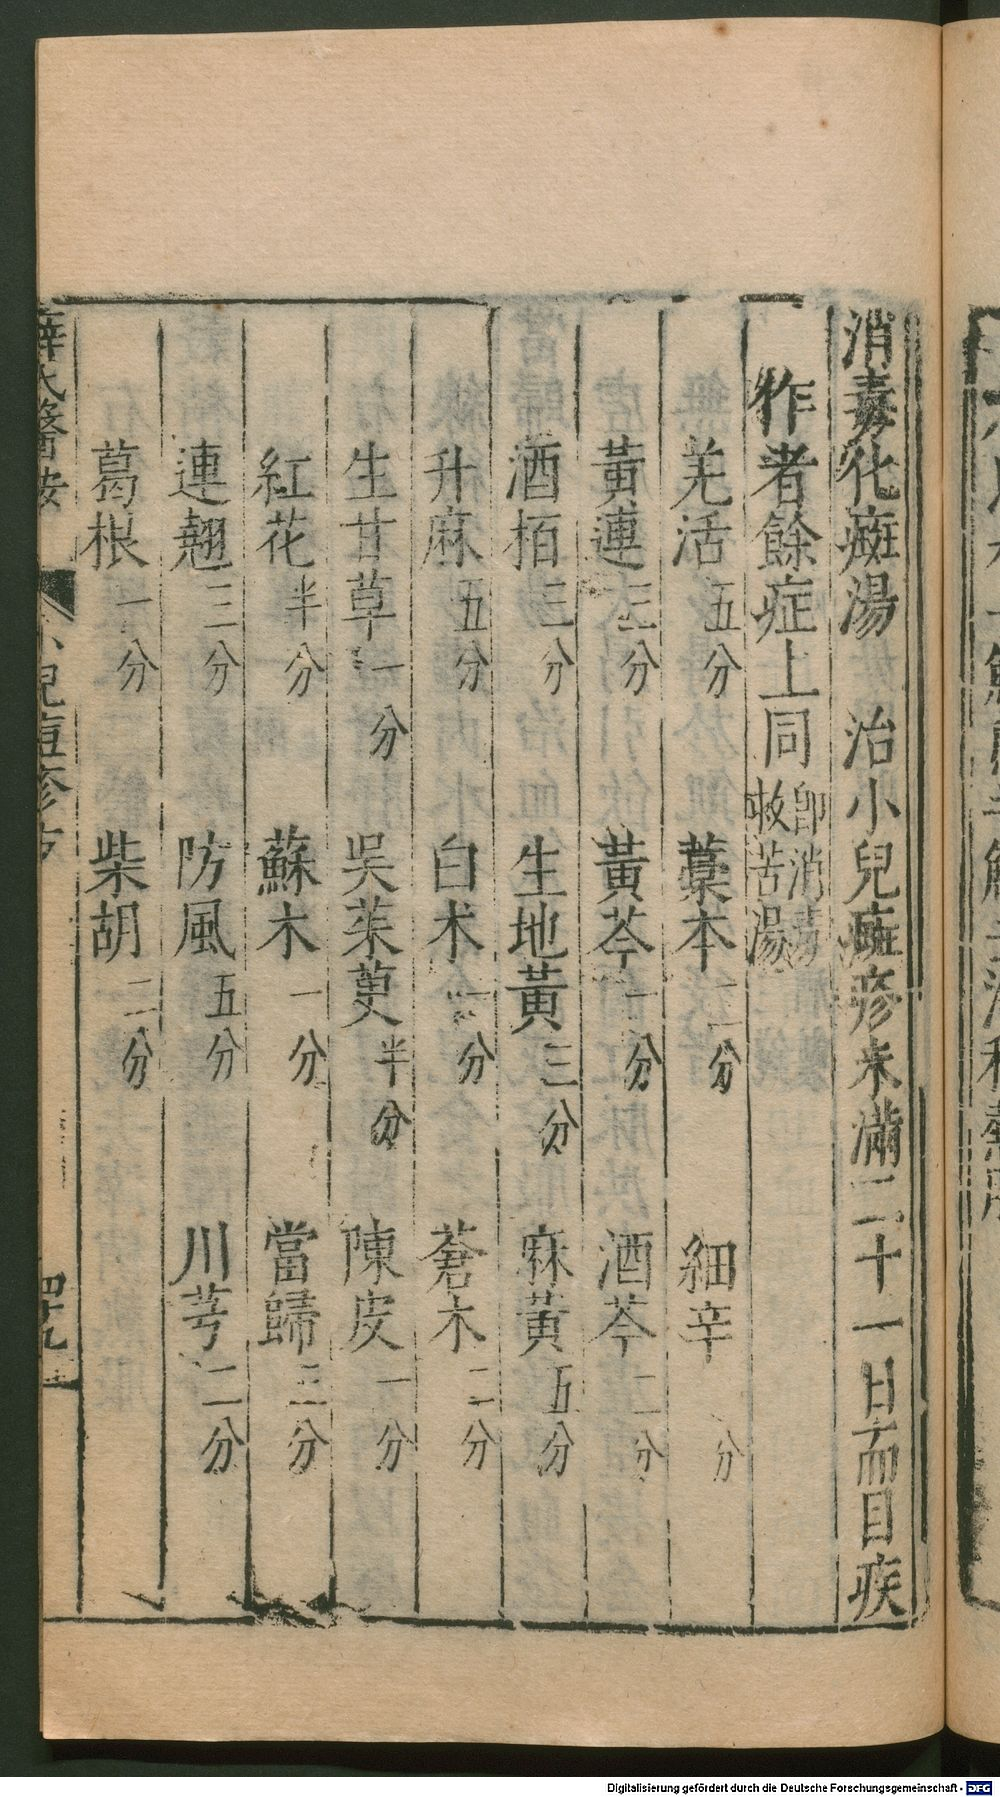 消毒化癍湯　治小兒癍疹未滿二十一日而目疾
作者餘症上同 卽消毒救苦湯
羌活五分　藁本二分　細辛　分
黃連三分　黃芩一分　酒芩二分
酒栢三分　生地黃三分　麻黃五分
升麻五分　白术一分　蒼木二分
生甘草一分　吳茱萸半分　陳皮一分
紅花半分　蘇木一分　當歸三分
連翹三分　防風五分　川芎二分
葛根一分　柴胡二分
薛氏醫按　小兒痘疹方　四十九
Digitalisierung gefördert durch die Deutsche Forschungsgemeinschaft - DFG